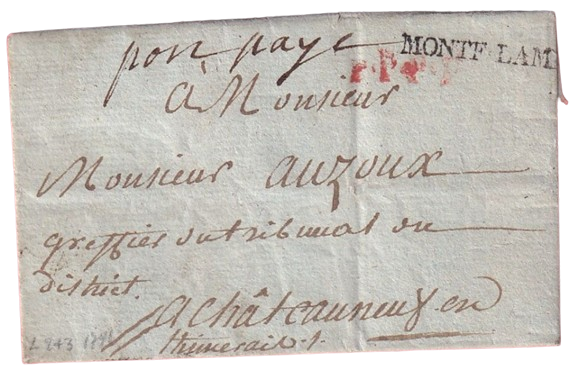 port payé
MONTF-LAM
P.P.P.P
à Monsieur
Monsieur auzoux
greffier du tribunal du
district.
a châteauneuf en
thimerais